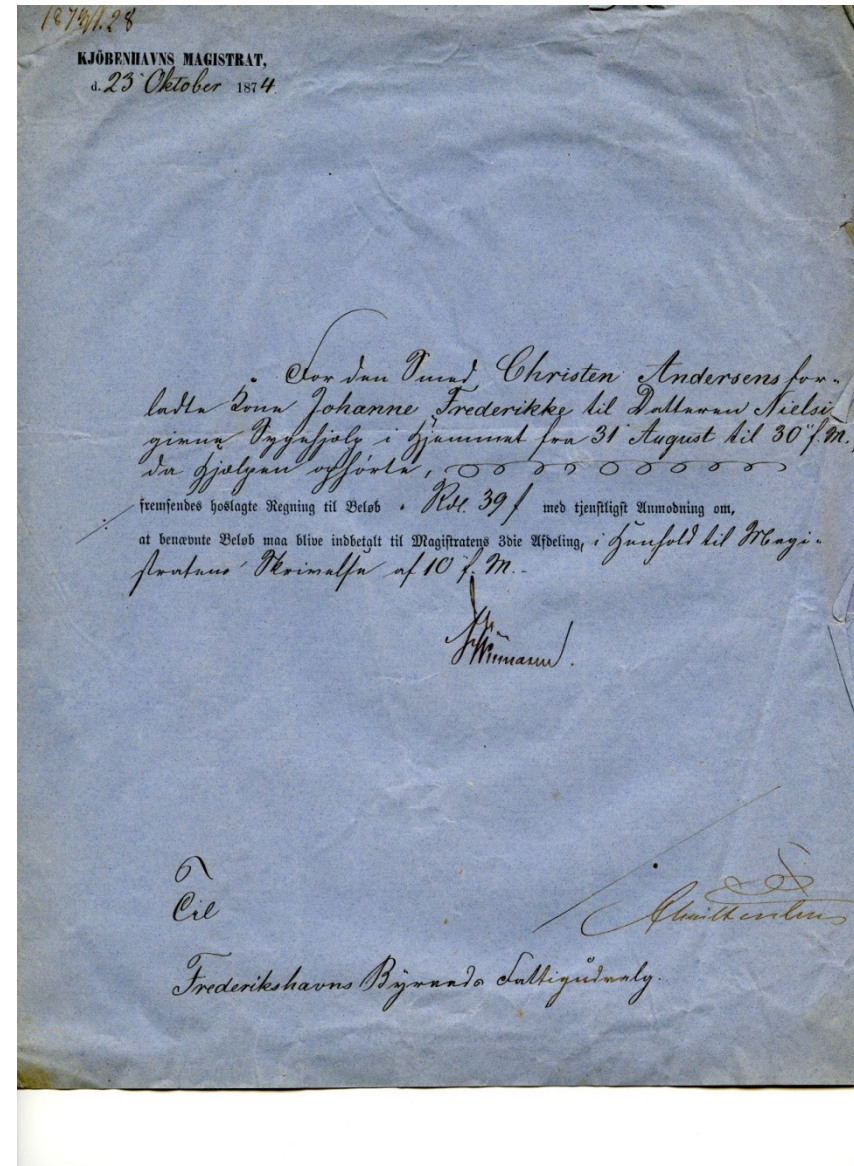 1874/1.28
KJÖBENHAVNS MAGISTRAT,
d. 23 Oktober 1874.
For den Smed Christen Andersens for-
ladte Kone Johanne Frederikke til Datteren Nielsi
givne Sygehjælp i Hjemmet fra 31 August til 30 f. M.,
da Hjælpen ophørte,
fremsendes hoslagte Regning til Beløb " Rdl. 39 ß med tjenstligst Anmodning om,
at benævnte Beløb maa blive indbetalt til Magistratens 3die Afdeling, i Henhold til Magi-
stratens Skrivelse af 10 f. M.
Til
Frederikshavns Byraads Fattigudvalg.